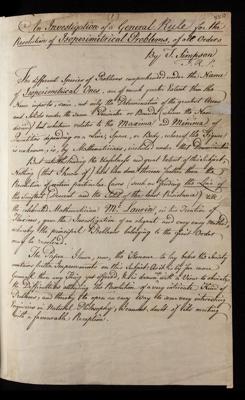 An Investigation of a General Rule for the
Resolution of Isoperimetrical Problems, of all Orders
By T. Simpson
F. R. S.
The different Species of Problems comprehended under the Name
of Isoperimetrical Ones, are of much greater Extent than the
Name imports, since, not only the Determination of the greatest Areas
and Solids under the same Perimeter or Bounds (whence the Name
but whatever relates to the Maxima and Minima of
Quantities depending on a Line, Space, or Body, whereof the Figure
is unknown, is, by Mathematicians, included under that Denomination.
But notwithstanding the Usefulness and great Extent of this Subject,
Nothing (that I know of) has been done therein farther than the
Resolution of certain particular Cases, (such as finding the Line of
the swiftest Descent and the Solid of the least Resistance)
the celebrated Mathematician Mr. Laurin, in his Treatise of
Fluxions, gave the Investigation of an elegant and very easy Method
whereby the principal Problems belonging to the first Order
may be resolved.
The Paper I have, now, the Honour to lay before the Society
contains further Improvements on this Subject; as it is by far more
general than any Thing yet offered,
the Difficulties attending the Resolution of a very intricate Kind of
Problems, and thereby the open an easy Way to some very interesting
Enquiries in Natural Philosophy, doubt of its meeting
with a favourable Reception.